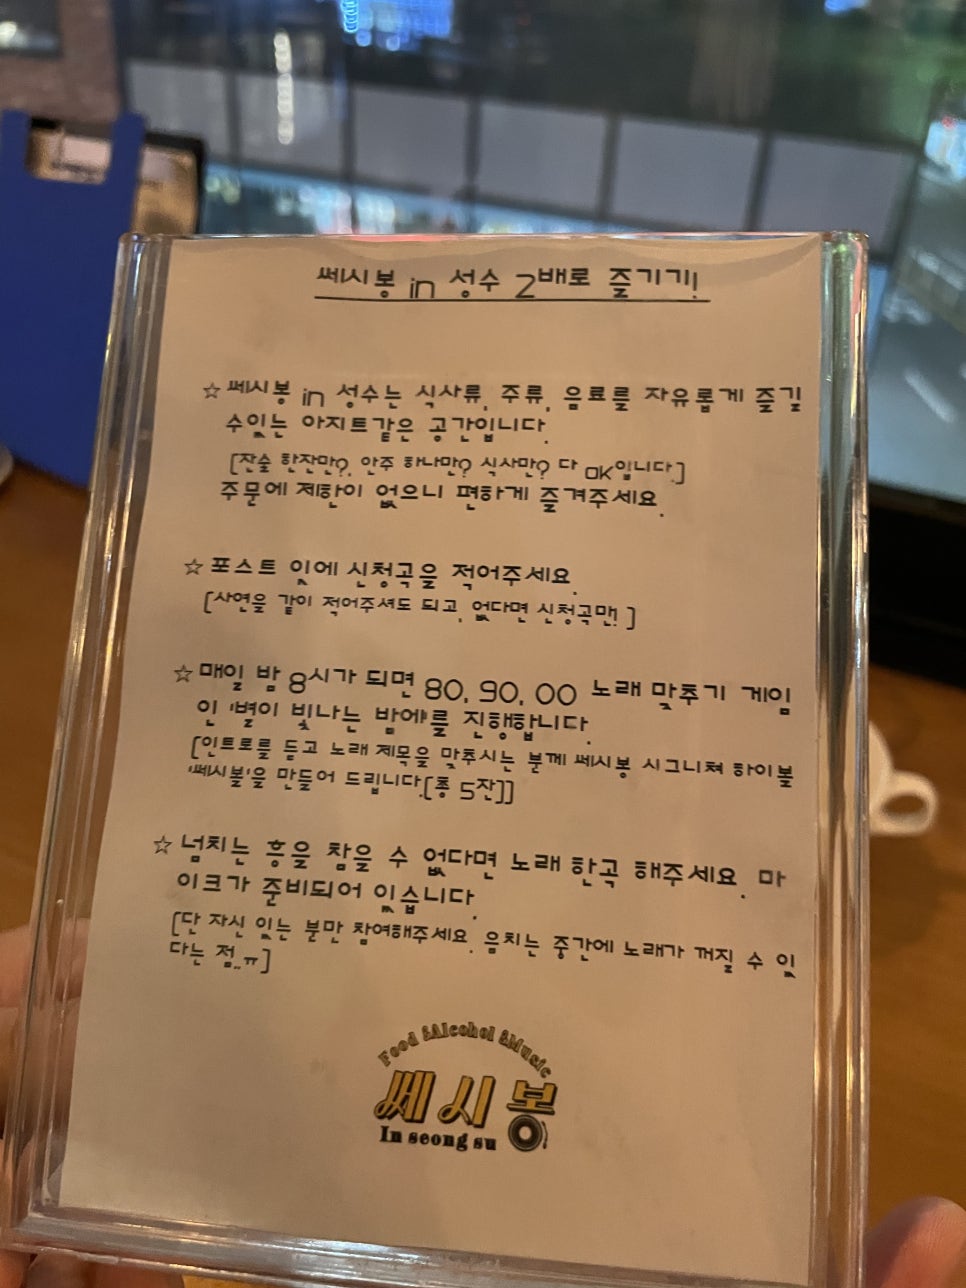 쎄시봉 in 성수 2배로 즐기기!
☆ 쎄시봉 in 성수는 식사류, 주류, 음료를 자유롭게 즐길
수있는 아지트같은 공간입니다.
[잔술 한잔만?, 안주 하나만? 식사만? 다 OK입니다.]
주문에 제한이 없으니 편하게 즐겨주세요.
☆ 포스트 잇에 신청곡을 적어주세요.
[사연을 같이 적어주셔도 되고, 없다면 신청곡맨! ]
☆ 매일 밤 8시가 되면 80, 90, 00 노래 맞추기 게임
인 '별이 빛나는 밤에'를 진행합니다.
[인트로를 듣고 노래 제목을 맞추시는 분께 쎄시봉 시그니쳐 하이볼
'쎄시볼'을 만들어 드립니다.[총 5잔]]
☆ 넘치는 흥을 참을 수 없다면 노래 한곡 해주세요. 마
이크가 준비되어 있습니다.
[단 자신 있는 분만 참여해주세요. 음치는 중간에 노래가 꺼질 수 있
다는 점..ㅠ]
Food &Alcohol &Music
쎄시봉
In seong su